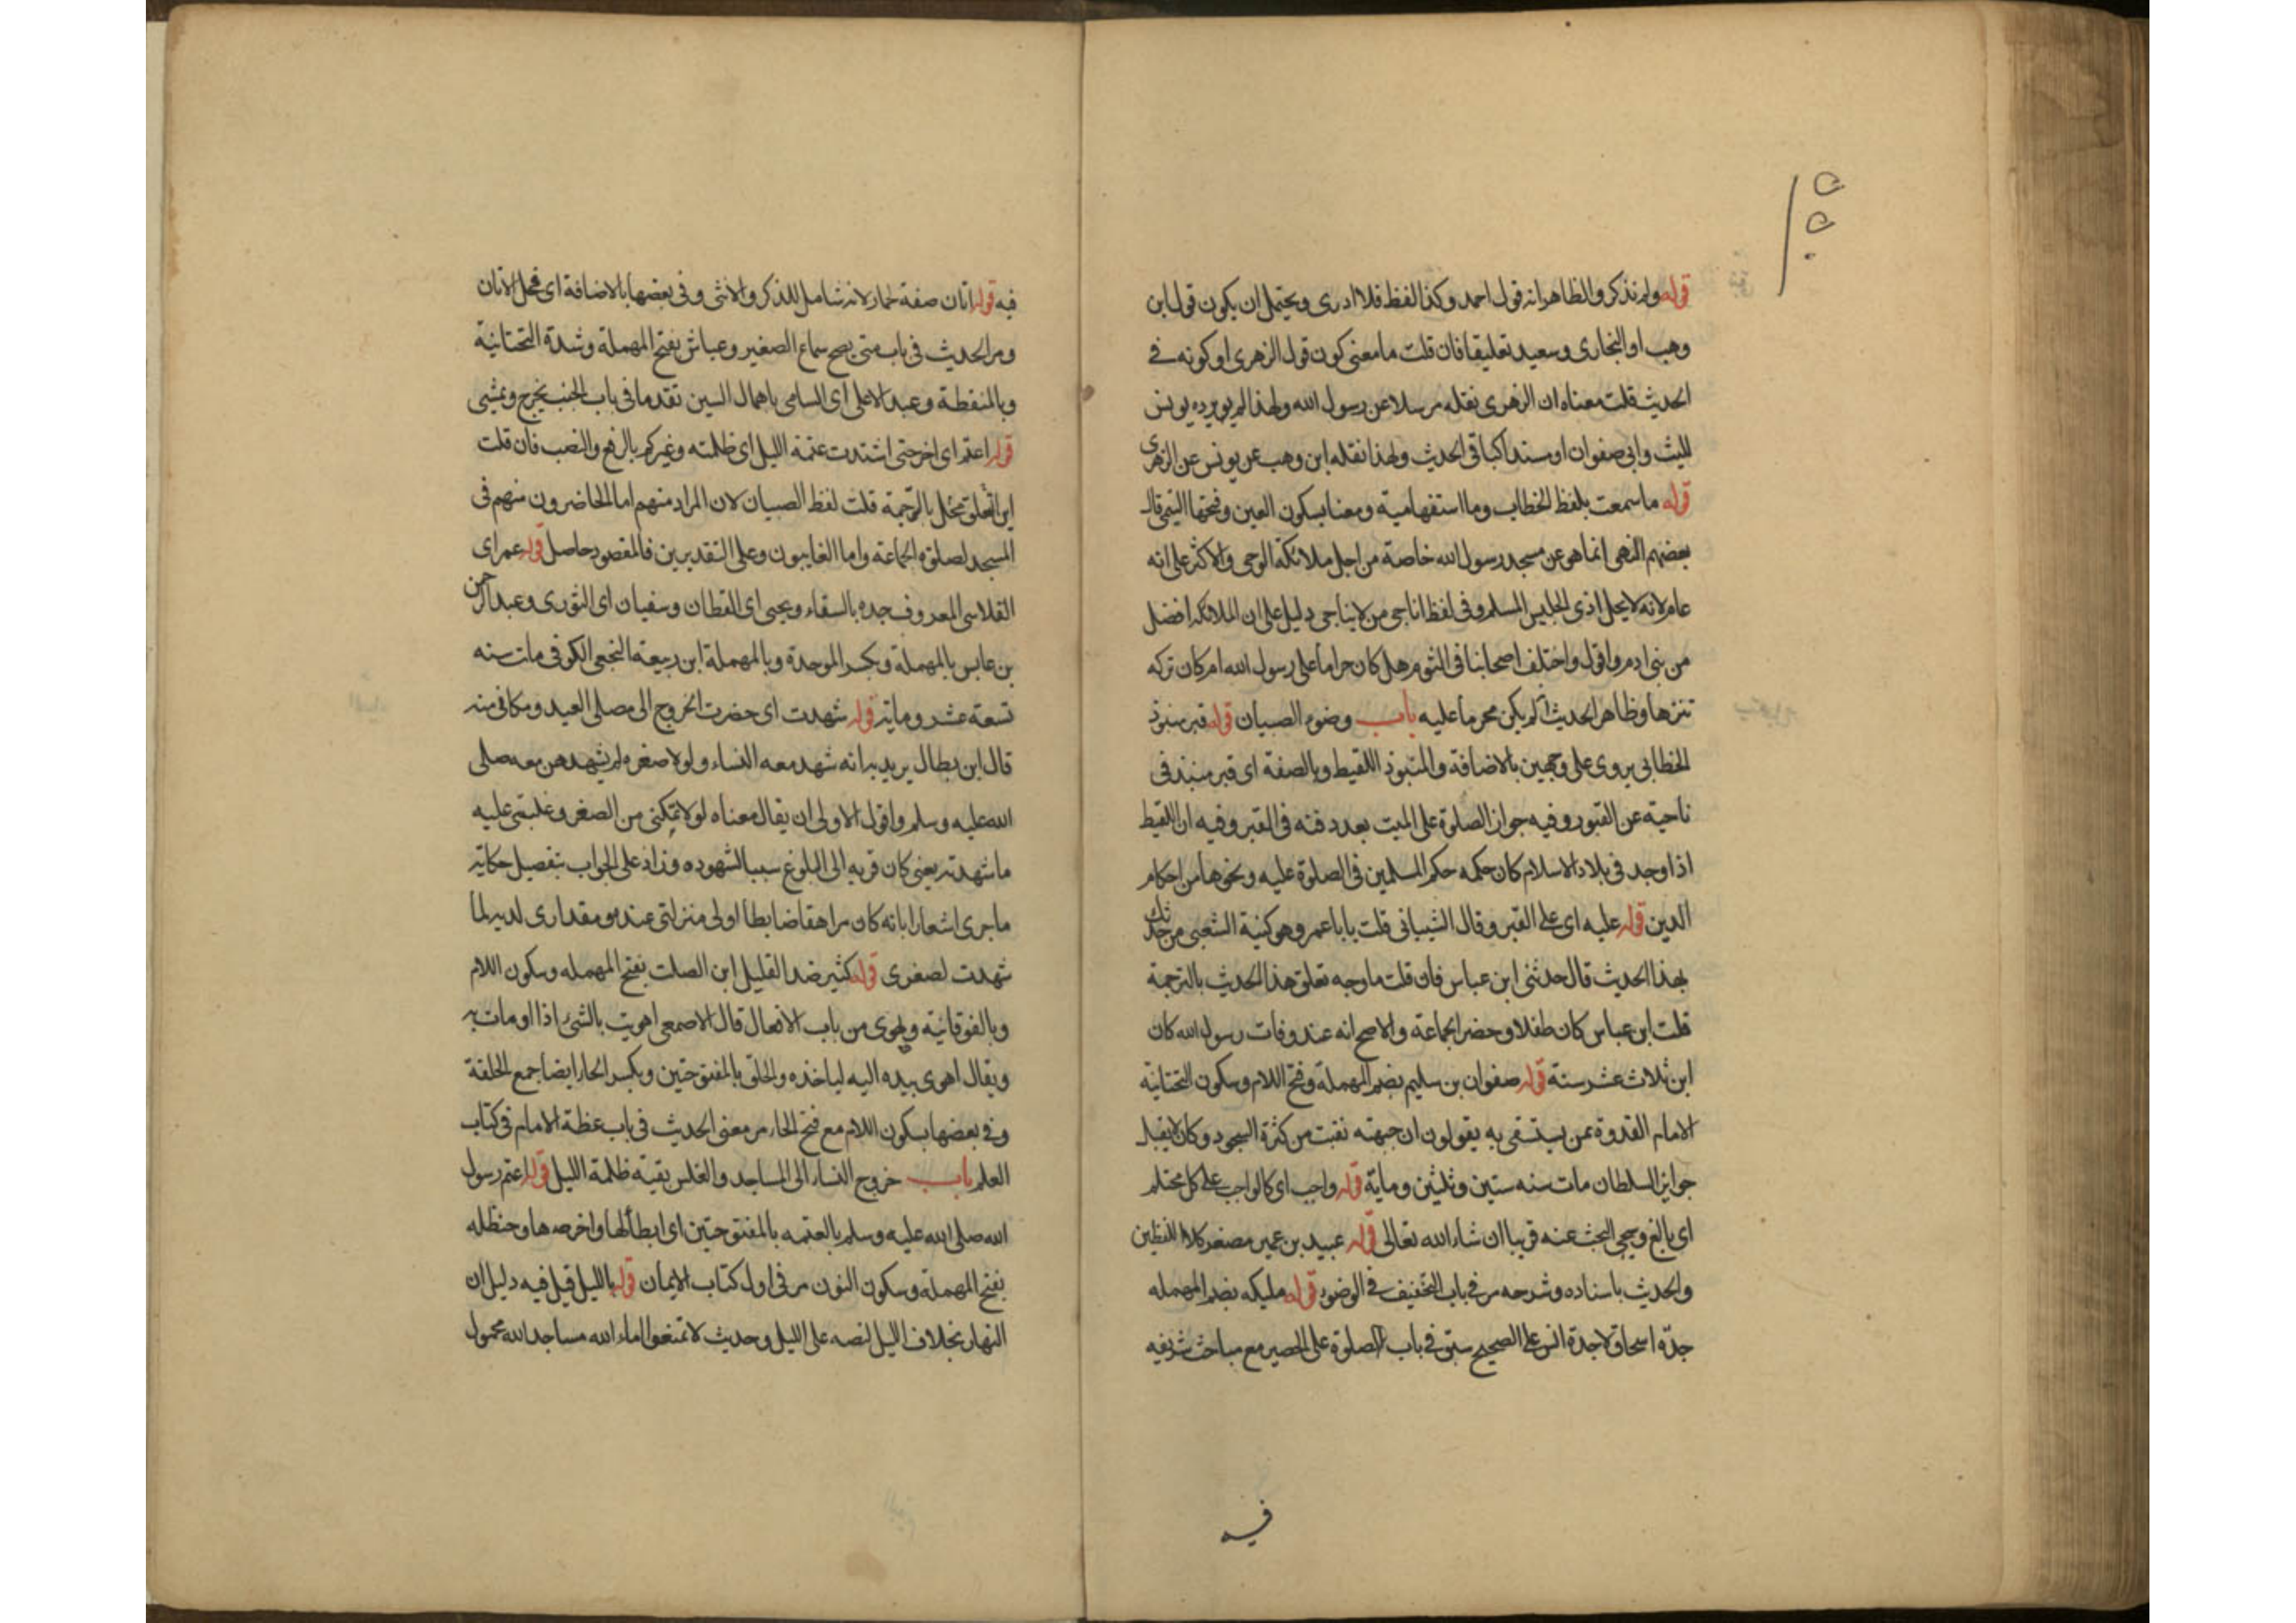 قوله ولم نذكر والظاهر انه قول احمد وكذا لفظ فلا ادرى ويحتمل ان يكون قول ابن
وهب او البخارى وسعيد تعليقا فان قلت ما معنى كون قول الزهرى او كونه فى
الحديث قلت معناه ان الزهرى نقله مرسلا عن رسول الله ولهذا لم يورده يونس
لليث وابى صفوان او مسندا كباقى الحديث ولهذا نقله ابن وهب عن يونس عن الزهرى
قوله ما سمعت بلفظ الخطاب وما استفهامية ومعنا بسكون العين وفتحها التيمى قال
بعضهم النهى انما هو عن مسجد رسول الله خاصة من اجل ملائكة الوحى والاكثر على انه
عام لانه لا يحل اذى الجليس المسلم وفى لفظ اناجى من لا يناجى دليل على ان الملائكه افضل
من بنى ادم واقول واختلف اصحابنا فى الثوم هل كان حراما على رسول الله ام كان تركه
تنزها وظاهر الحديث انه لم يكن محرما عليه باب وضوء الصبيان قوله قبر منبوذ
الخطابى يروى على وجهين بالاضافة والمنبوذ اللقيط وبالصفة اى قبر منبذ فى
ناحية عن القبور وفيه جواز الصلوة على الميت بعد دفنه فى القبر وفيه ان اللقيط
اذا وجد فى بلاد الاسلام كان حكمه حكم المسلمين فى الصلوة عليه ونحوها من احكام
الدين قوله عليه اى على القبر وقال الشيبانى قلت يا با عمرو هو كنية الشعبى من حدثك
بهذا الحديث قال حدثنى ابن عباس فان قلت ما وجه تعلق هذا الحديث بالترجمة
قلت ابن عباس كان طفلا وحضر الجماعة والاصح انه عند وفات رسول الله كان
ابن ثلاث عشر سنة قوله صفوان بن سليم بضم المهملة وفتح اللام وسكون التحتانية
الامام القدوة ممن يستسقى به يقولون ان جبهته نقبت من كثرة السجود وكان لا يقبل
جوايز السلطان مات سنه ستين وثلثين وماية قوله واجب اى كالواجب على كل محتلم
اى بالغ ويجى البحث عنه قريبا ان شاء الله تعالى قوله عبيد بن عمير مصغر كلا اللفظين
والحديث باسناده وشرحه مر فى باب التخفيف فى الوضوء قوله مليكه بضم المهمله
جدّه اسحاق لا جدة انس على الصحيح سبق فى باب الصلوة على الحصير مع مباحث شريفه
فيه
فيه قوله اتان صفة لحمار لانه شامل للذكر والانثى وفى بعضها بالاضافة اى فحل الاتان
ومر الحديث فى باب متى يصح سماع الصغير وعياش بفتح المهملة وشدة التحتانية
وبالمنقطة وعبد الاعلى اى السامى باهمال السين تقدما فى باب الجنب يخرج ويمشى
قوله اعتم اى اخر حتى اشتدت عتمة الليل اى ظلمته وغيركم بالرفع والنصب فان قلت
اين تعلق محل بالترجمة قلت لفظ الصبيان لان المراد منهم اما الحاضرون منهم فى
المسجد لصلوة الجماعة واما الغايبون وعلى التقديرين فالمقصود حاصل قوله عمر اى
الفلاس المعروف جده بالسقاء ويحيى اى القطان وسفيان اى الثورى وعبد الرحمن
بن عابس بالمهملة وبكسر الموحدة وبالمهملة ابن ربيعة النخعى الكوفى مات سنه
تسعة عشر وماية قوله شهدت اى حضرت الخروج الى مصلى العيد ومكانى منه
قال ابن بطال يريد به انه شهد معه النساء ولولا صغره لم يشهدهن معه صلى
الله عليه وسلم واقول الاولى ان يقال معناه لولا تمكنى من الصغر وغلبتى عليه
ما شهدته يعنى كان قربه الى البلوغ سببا لشهوده وزاد على الجواب بتفصيل حكاية
ما جرى اشعارا بانه كان مراهقا ضابطا اولى منزلتى عنده ومقدارى لديه لما
شهدت لصغرى قوله كثير ضد القليل ابن الصلت بفتح المهمله وسكون اللام
وبالفوقانية ويهوى من باب الافعال قال الاصمعى اهويت بالشئ اذا اومات به
ويقال اهوى بيده اليه لياخذه والحلق بالمفتوحتين وبكسر الحاء ايضا جمع الحلقة
وفى بعضها بسكون اللام مع فتح الحاء مر معنى الحديث فى باب عظة الامام فى كتاب
العلم باب خروج النساء الى المساجد والغلس بقية ظلمة الليل قوله اعتم رسول
الله صلى الله عليه وسلم بالعتمه بالمفتوحتين اى ابطا لها واخرها وحنظله
بفتح المهملة وسكون النون مر فى اول كتاب الايمان قوله بالليل قيل فيه دليل ان
النهار بخلاف الليل لنصه على الليل وحديث لا تمنعوا اماء الله مساجد الله محمول